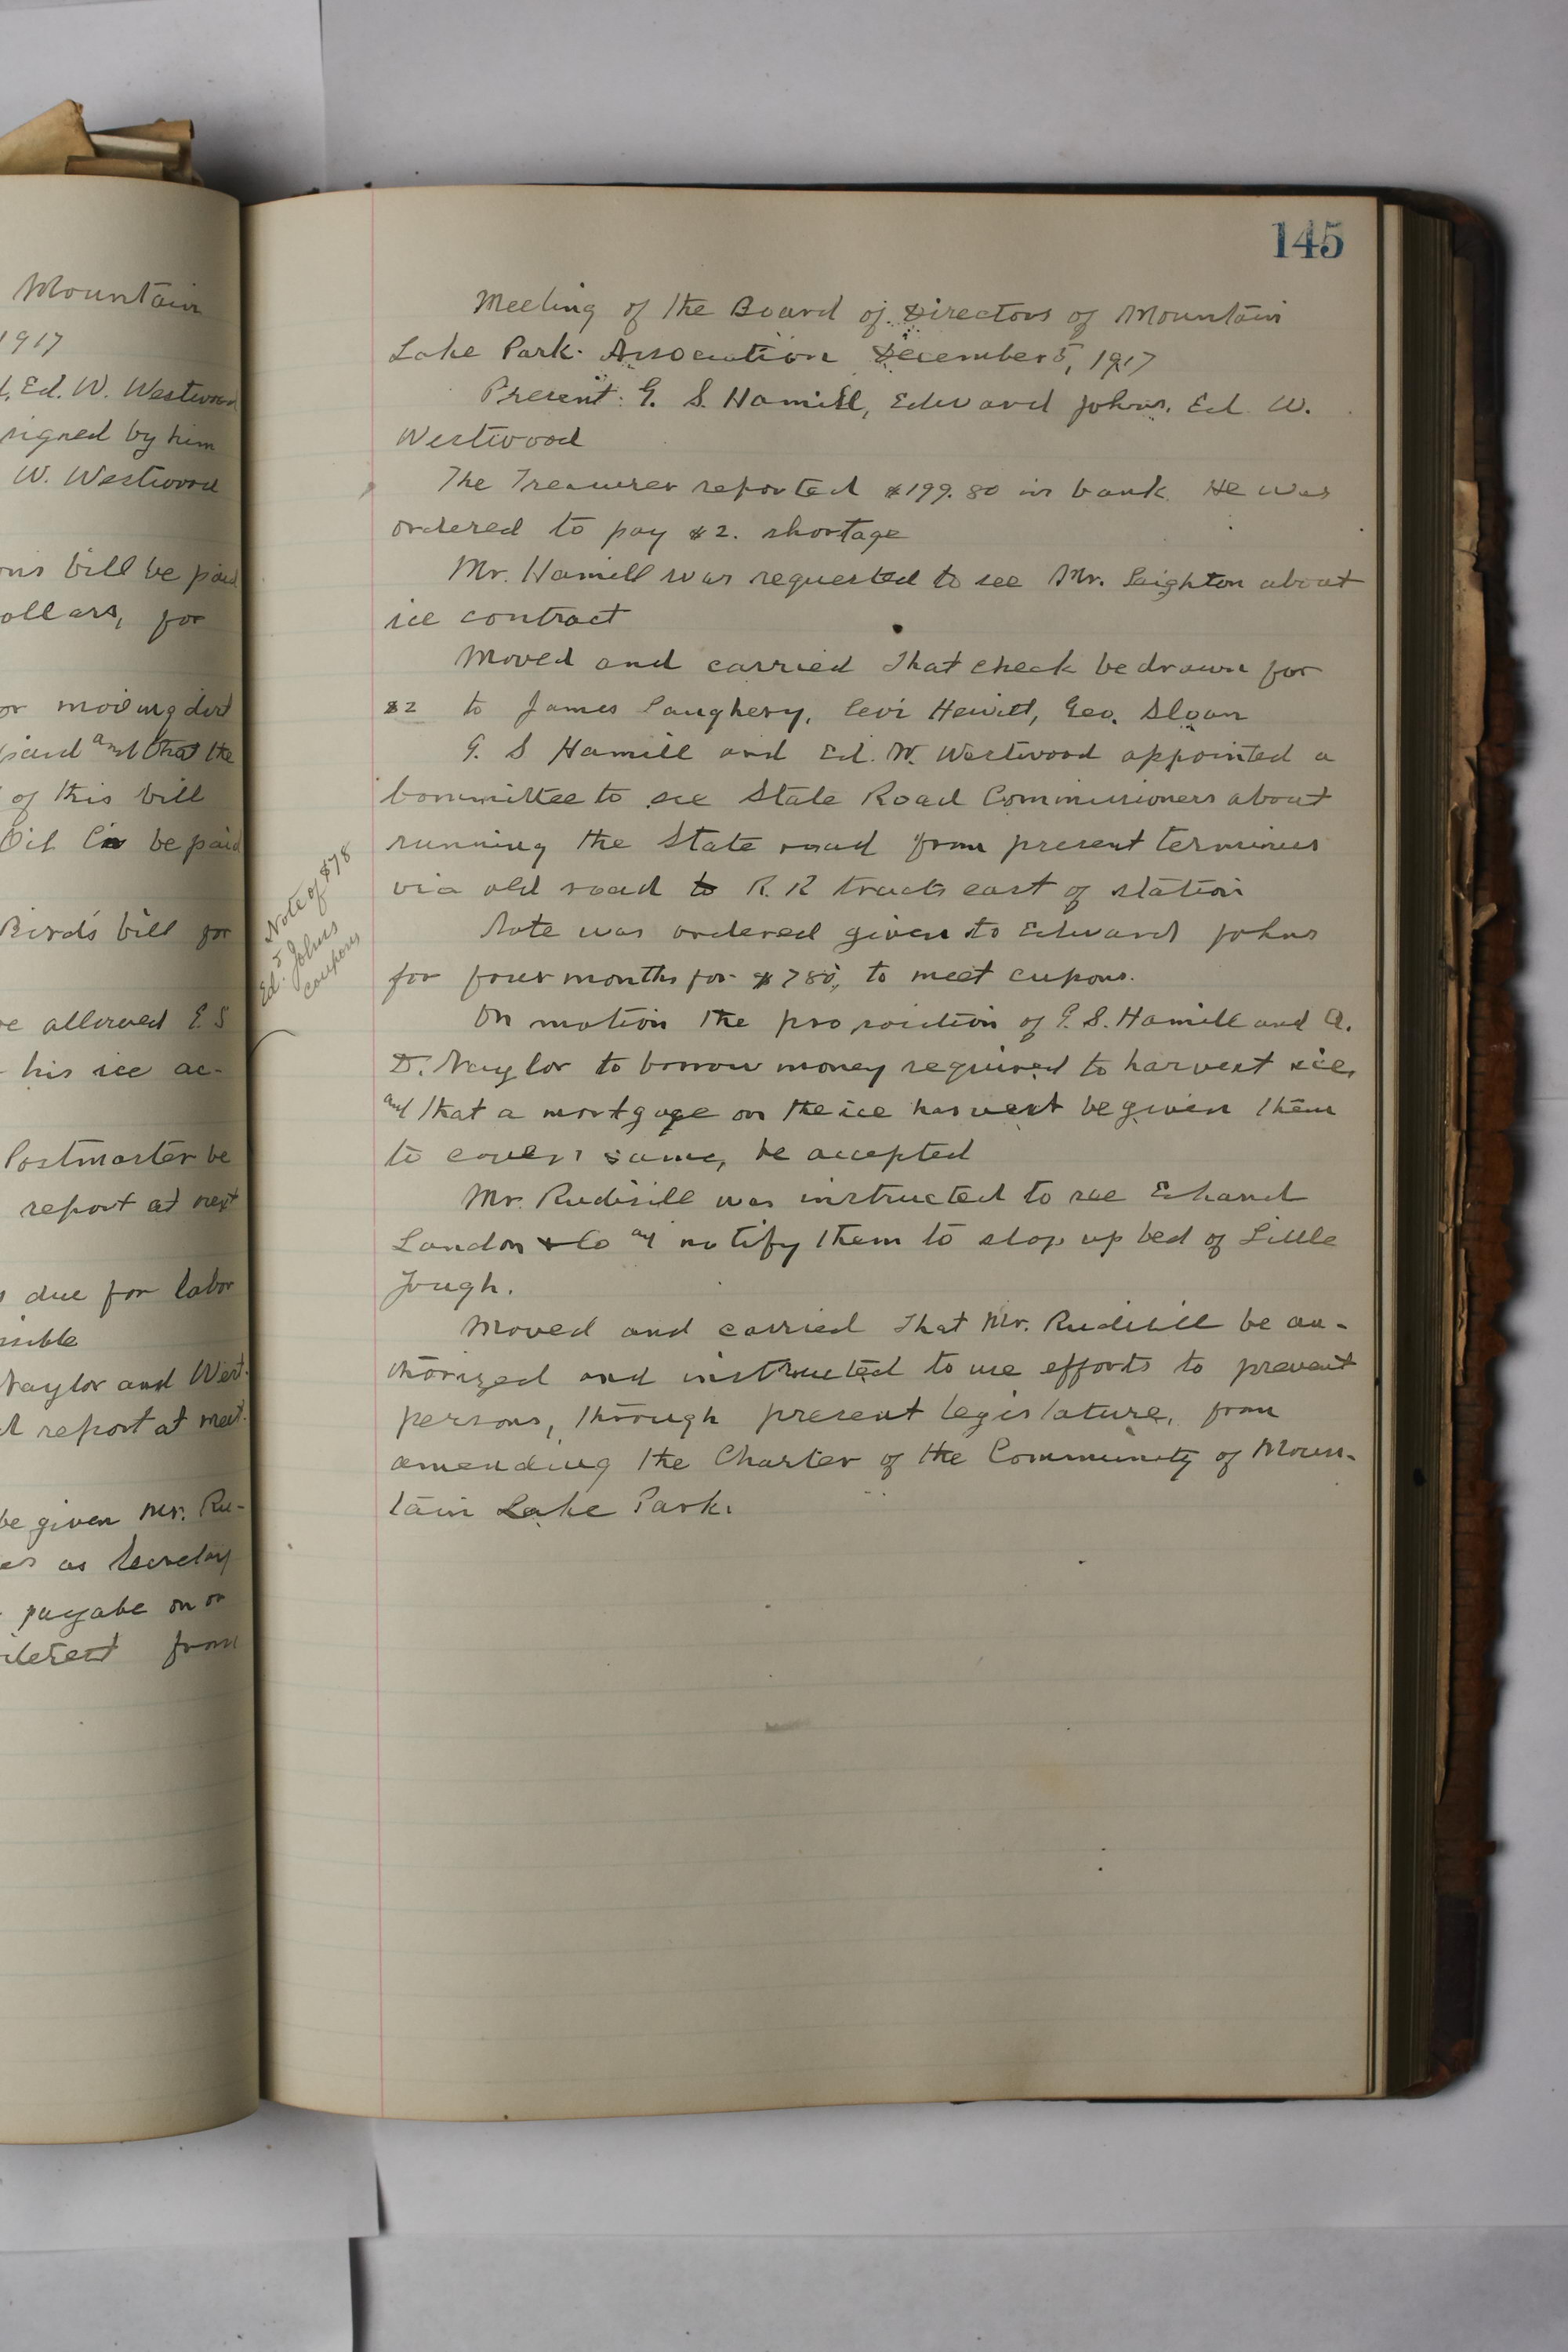 Mountain
1917
Ed. W. Westwood
signed by him
W. Westwood
bill be paid
ollars, for
moving dirt
paid and that the
of this bill
Oil Co be paid
Bird's bill for
allowed E. S
his ice ac-
Postmaster be
report at next
due for labor
Naylor and West-
report at meet-
be given Mr. Ru-
as Secretary
payabe on or
from
145
Meeting of the Board of Directors of Mountain
Lake Park Association December 5, 1917
Present: G. S. Hamill, Edward Johns, Ed W.
Westwood
The Treasurer reported $199.80 in bank. He was
ordered to pay $2. shortage
Mr. Hamill was requested to see Mr. Leighton about
ice contract
Moved and carried that check be drawn for
$2 to James Laughery, Levi Hewitt, Geo. Sloan
G. S Hamill and Ed. W. Westwood appointed a
committee to see State Road Commissioners about
running the State road from present terminus
via old road to R. R tracks east of station
Note of $78
Ed. Johns
coupons
Note was ordered given to Edward Johns
for four months for $780, to meet cupons.
On motion the proposition of G. S. Hamill and A.
D. Naylor to borrow money required to harvest ice,
and that a mortgage on the ice harvest be given them
to cover same, be accepted
Mr. Rudisill was instructed to see
London & Co and notify them to stop up bed of Little
Yough.
Moved and carried that Mr. Rudisill be au-
thorized and instructed to use efforts to prevent
persons, through present legislature, from
amending the Charter of the Community of Moun-
tain Lake Park.